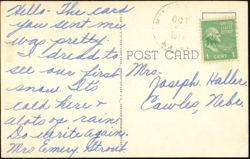 Hello - The card
you sent me
was pretty.
I dread to
see our first
snow. Its
cold here &
alots op rain.
Do write again.
Mrs Emery Stroud
OCT
POST CARD
1 CENT 1
Mrs.
Joseph Haller
Cowles, Nebr